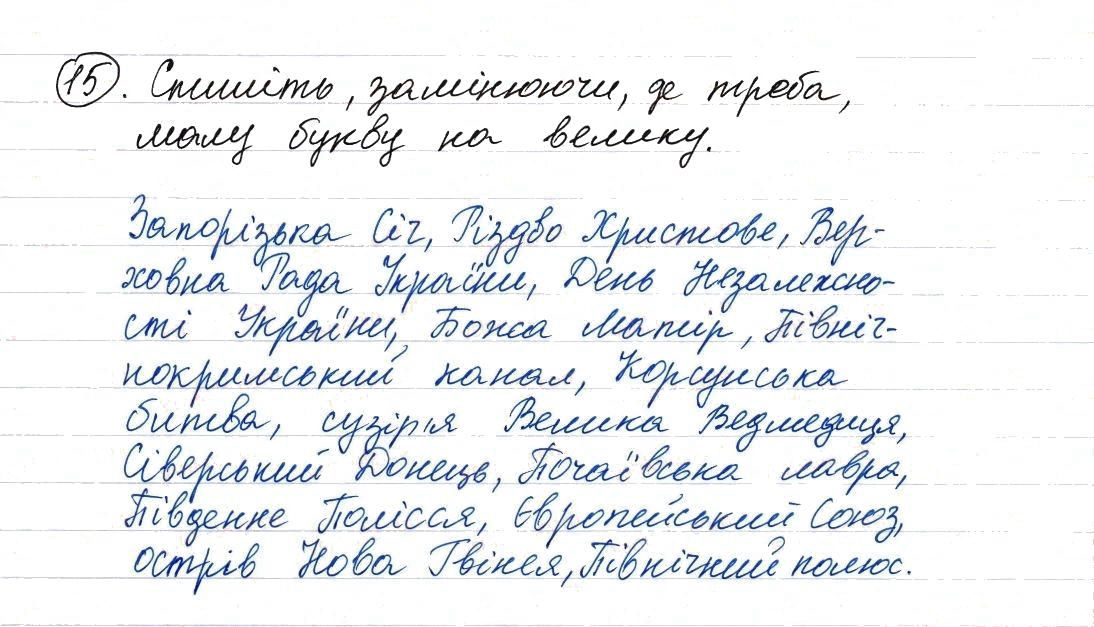 15. Спишіть, замінюючи, де треба,
малу букву на велику.
Запорізька Січ, Різдво Христове, Вер-
ховна Рада України, День Незалежно-
сті України, Божа Матір, Північ-
нокримський канал, Корсунська
битва, сузір'я Велика Ведмедиця,
Сіверський Донець, Почаївська лавра,
Південне Полісся, Європейський Союз,
острів Нова Гвінея, Північний полюс.